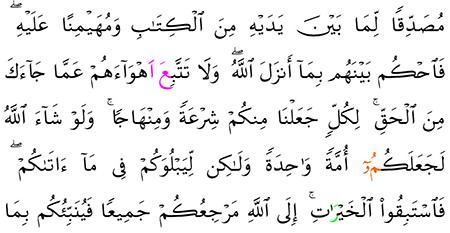 مُصَدِّقٗا لِّمَا بَيۡنَ يَدَيۡهِ مِنَ اَ۬لۡكِتَٰبِ وَمُهَيۡمِنًا عَلَيۡهِۖ
فَاَحۡكُم بَيۡنَهُم بِمَآ أَنزَلَ اَ۬للَّهُۖ وَلَا تَتَّبِعَ اَهۡوَآءَهُمۡ عَمَّا جَآءَكَ
مِنَ اَ۬لۡحَقِّۚ لِكُلّٖ جَعَلۡنَا مِنكُمۡ شِرۡعَةٗ وَمِنۡهَاجٗاۚ وَلَوۡ شَآءَ اَ۬للَّهُ
لَجَعَلَكُمُۥٓ أُمَّةٗ وَٰحِدَةٗ وَلَٰكِن لِّيَبۡلُوَكُمۡ فِے مَآ ءَاتَىٰكُمۡۖ
فَاَسۡتَبِقُواْ اُ۬لۡخَيۡرَٰتِۚ إِلَى اَ۬للَّهِ مَرۡجِعُكُمۡ جَمِيعٗا فَيُنَبِّئُكُم بِمَا